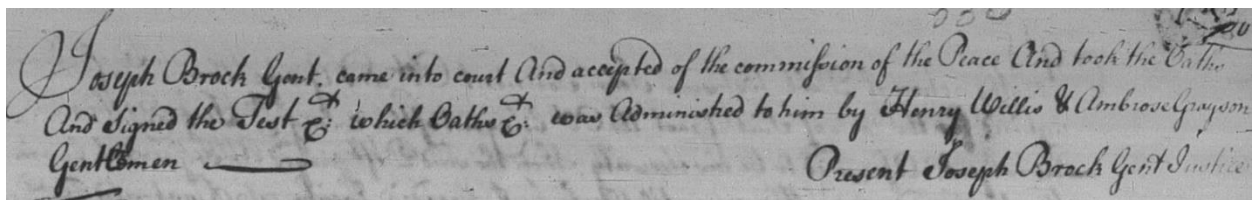 Joseph Brock Gent. came into court And accepted of the commission of the Peace And took the Oaths
And Signed the Test &c: which Oaths &c: was Adminished to him by Henry Willis & Ambrose Grayson
Gentlemen
Present Joseph Brock Gent Justice